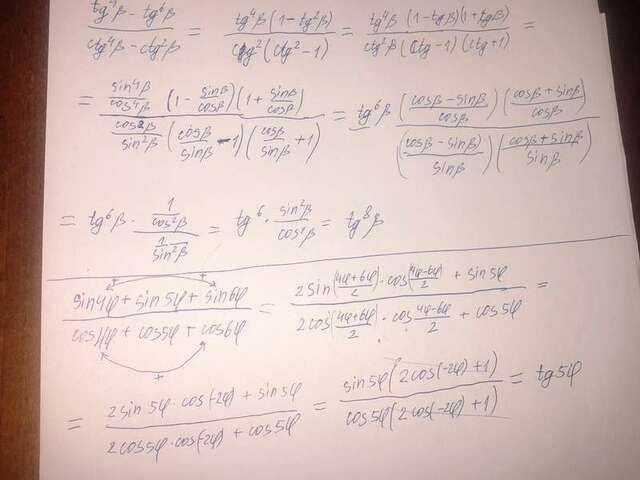 (tg⁴β - tg⁶β)/(ctg⁴β - ctg²β) = (tg⁴β (1 - tg²β))/(ctg²(ctg² - 1)) = (tg⁴β (1 - tgβ)(1 + tgβ))/(ctg²β (ctg - 1)(ctg + 1)) =
= (sin⁴β/cos⁴β (1 - sinβ/cosβ)(1 + sinβ/cosβ))/(cos²β/sin²β (cosβ/sinβ - 1)(cosβ/sinβ + 1)) = tg⁶β (((cosβ - sinβ)/cosβ)((cosβ + sinβ)/cosβ))/(((cosβ - sinβ)/sinβ)((cosβ + sinβ)/sinβ))
= tg⁶β · (1/cos²β)/(1/sin²β) = tg⁶ · sin²β/cos²β = tg⁸β
(sin4φ + sin5φ + sin6φ)/(cos4φ + cos5φ + cos6φ) = (2sin((4φ+6φ)/2) · cos((4φ-6φ)/2) + sin5φ)/(2cos((4φ+6φ)/2) · cos (4φ-6φ)/2 + cos5φ) =
= (2sin5φ · cos(-2φ) + sin5φ)/(2cos5φ · cos(-2φ) + cos5φ) = (sin5φ(2cos(-2φ) + 1))/(cos5φ(2cos(-2φ) + 1)) = tg5φ